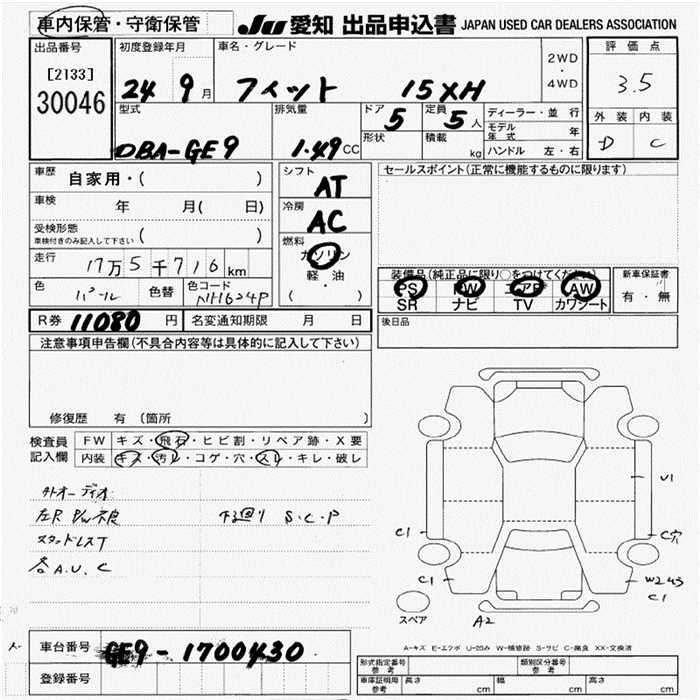 車内保管・守衛保管
JU 愛知 出品申込書 JAPAN USED CAR DEALERS ASSOCIATION
出品番号
[2133]
30046
初度登録年月
24 9 月
車名・グレード
フィット 15XH
2WD
・
4WD
評価点
3.5
型式
DBA-GE9
排気量
1.49 CC
ドア
5
定員
5 人
形状
積載
kg
ディーラー・並行
モデル年式 年
ハンドル 左・右
外装 内装
D C
車歴 自家用・( )
車検 年 月( 日)
受検形態
車検付きのみ記入して下さい ( )
走行 17万5千716km
色 パール 色替 色コード NH624P
シフト
AT
冷房
AC
燃料
ガソリン
軽・油
( )
セールスポイント(正常に機能するものに限ります)
装備品(純正品に限り○をつけてください) 新車保証書
PS PW エアB AW 有・無
SR ナビ TV カワシート
R券 11080 円 名変通知期限 月 日
後日品
注意事項申告欄(不具合内容等は具体的に記入して下さい)
修復歴 有(箇所 )
検査員記入欄
FW キズ・飛石・ヒビ割・リペア跡・X要
内装 キズ・汚レ・コゲ・穴・スレ・キレ・破レ
外オーディオ
左R P/W不良 下廻り S.C.P
スタッドレスT
各A.U.C
U1
C1
C穴
C1
W2 43
C1
スペア
A2
A-キズ E-エクボ U-凹み W-補修跡 S-サビ C-腐食 XX-交換済
車台番号 GE9-1700430
登録番号
形式指定番号
参考
類別区分番号
参考
車庫証明用
参考
長さ cm 幅 cm 高さ cm